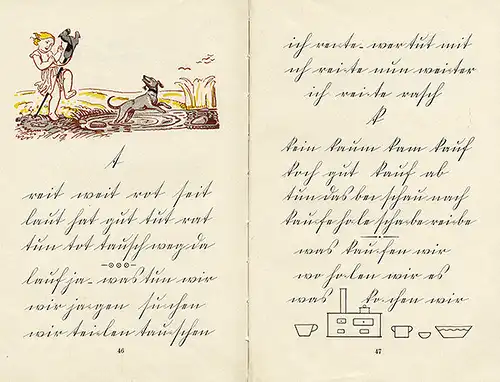 t
reit weit rot seit
laut hat gut tut rat
tun tot tausch weg da
lauf ja - was tun wir
wir jagen suchen
wir teilen tauschen
46
ich reite - wer tut mit
ich reite nun weiter
ich reite rasch
k
kein kaum kam kauf
koch gut kauf ab
tun das bei schau nach
kaufe hole schabe reibe
was kaufen wir
wo holen wir es
was kochen wir
47